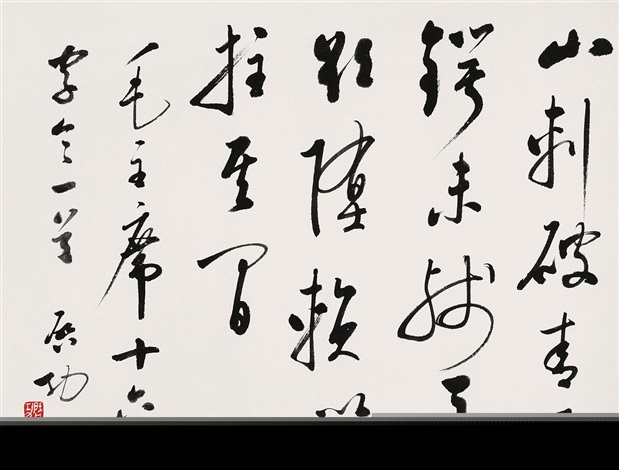 山刺破青
锷未残天
欲堕赖以
拄其间
毛主席十六
字令一首
启功